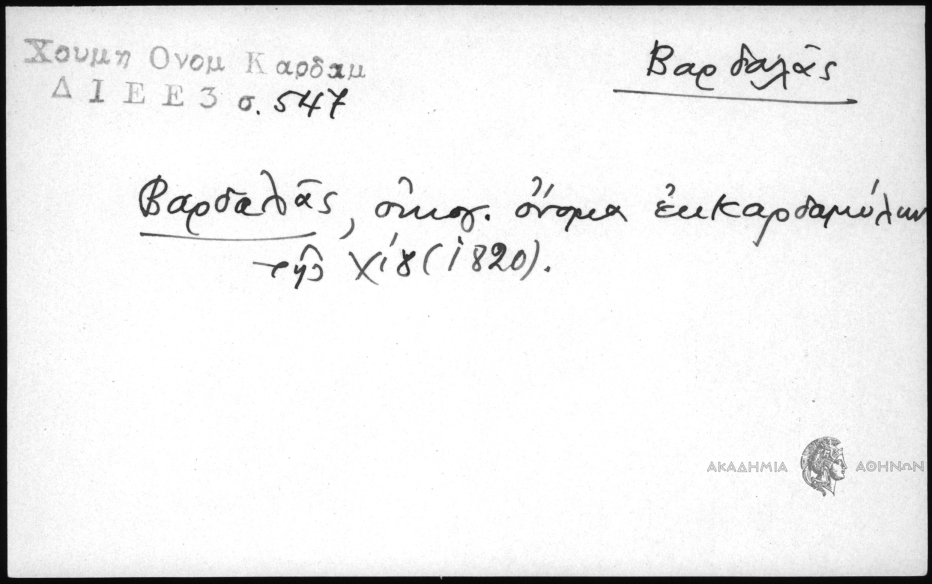 Χουμη Ονομ Καρδαμ
Δ Ι Ε Ε 3 σ. 547
Βαρδαλᾶς
Βαρδαλᾶς, οἰκογ. ὄνομα ἐκ Καρδαμύλων
τῆς Χίου (1820).
ΑΚΑΔΗΜΙΑ ΑΘΗΝΩΝ